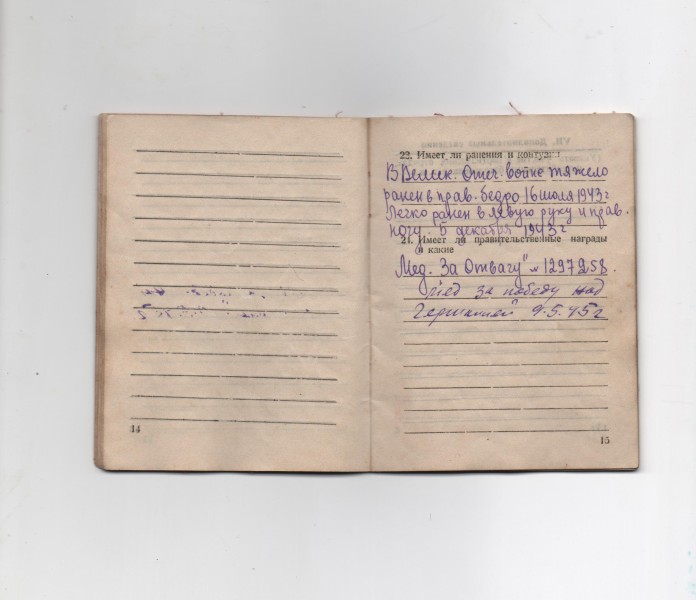 14
22. Имеет ли ранения и контузии
В Велик. Отеч. войне тяжело
ранен в прав. бедро 16 июля 1943 г
Легко ранен в левую руку и прав.
ногу. 5 декабря 1943 г
24. Имеет ли правительственные награды
и какие
Мед. За Отвагу" № 1297258.
Мед за победу над
Германией 9.5.45 г
15